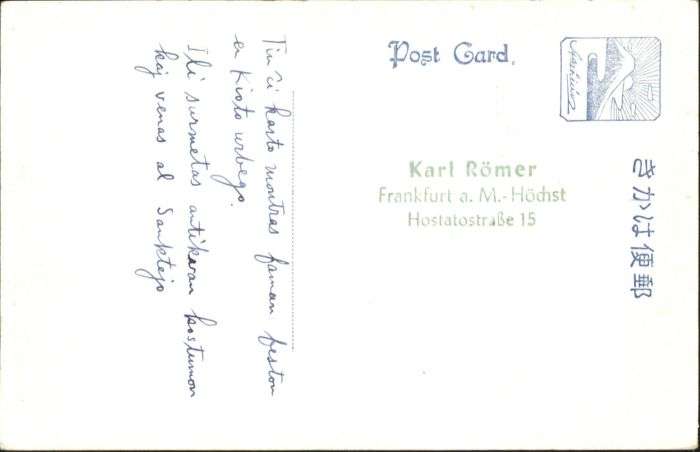 Post Card.
Karl Römer
Frankfurt a. M.-Höchst
Hostatostraße 15
きかは便郵
Tiu ĉi karto montras faman feston
en Kioto urbego.
Ili surmetas antikvan kostumon
kaj venas al Sanktejo